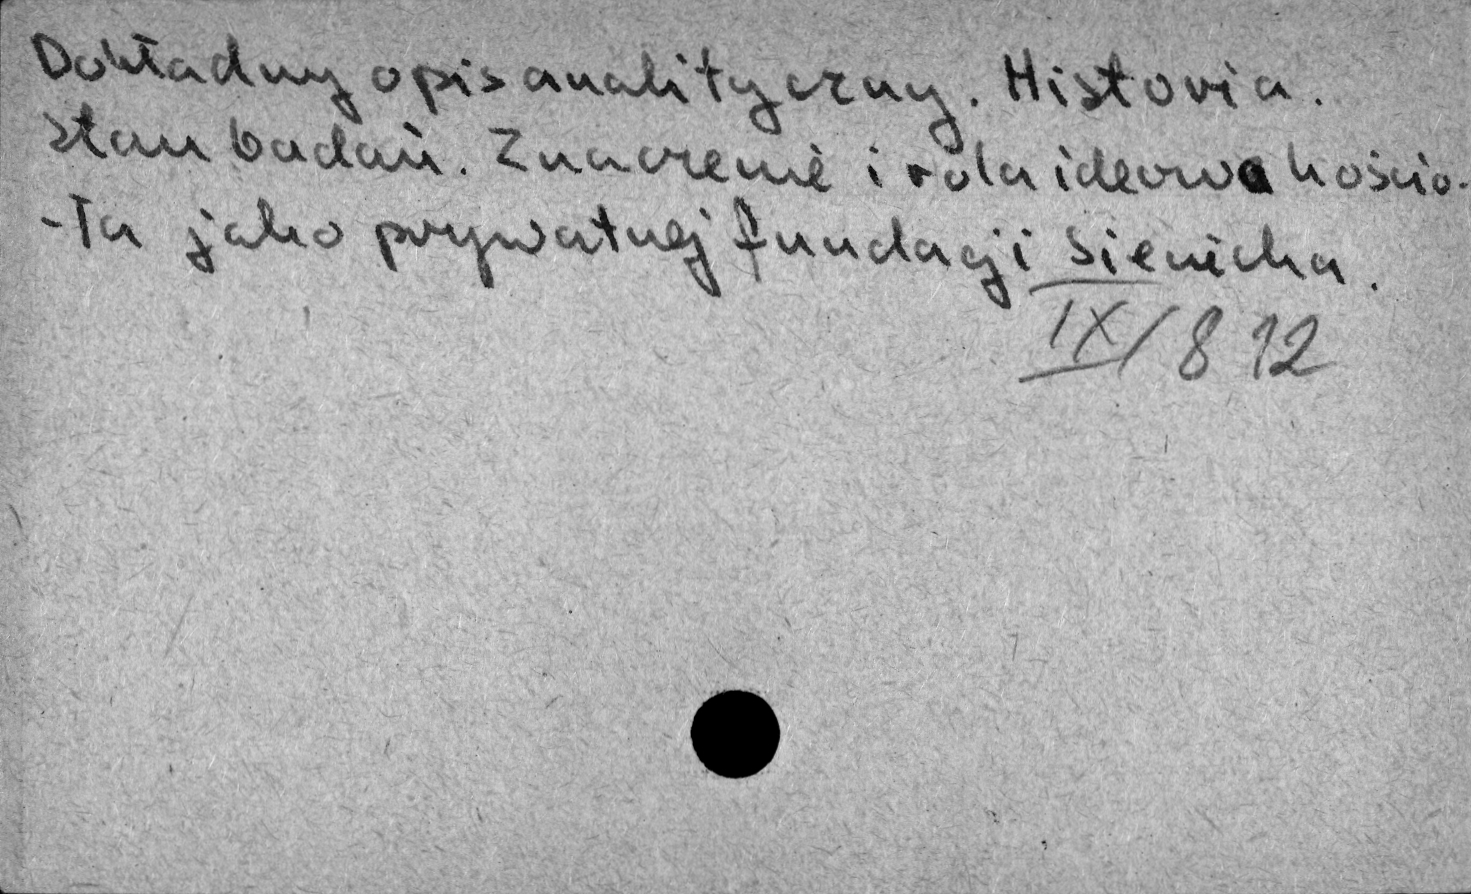 Dokładny opis analityczny. Historia.
stan badań. Znaczenie i rola ideowa kościo-
-ła jako prywatnej fundacji Sienicka.
IX/812